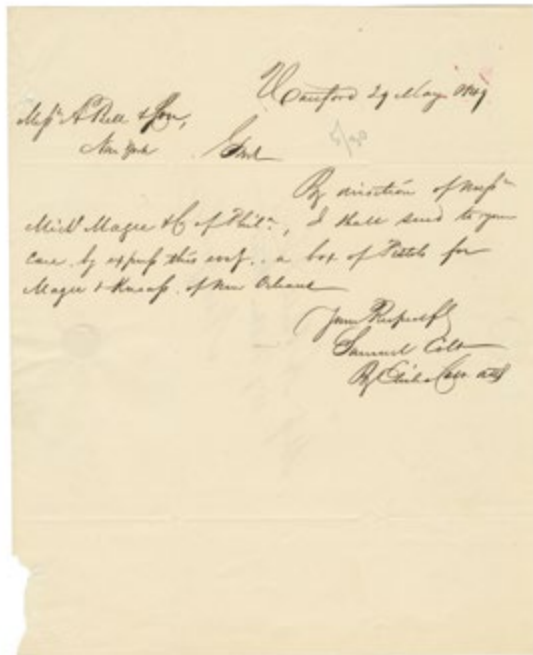 Hartford 29 May 1849
Messrs A Bell & Son,
New York
Gent
5/30
By direction of Messrs
Mich Magee & Co of Phila, I shall send to your
care, by express this eveg. a box of Pistols for
Magee & Kneass. of New Orleans
Yours Respectfly
Samuel Colt
By